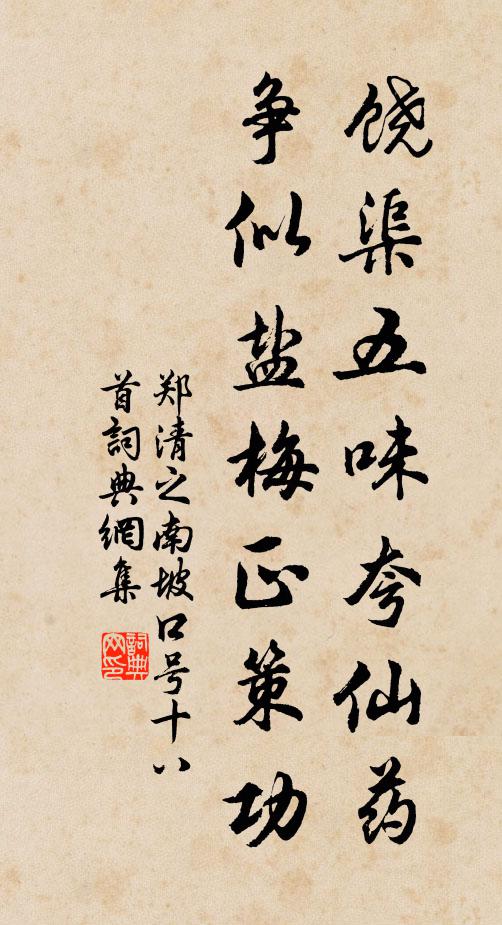 饶渠五味夸仙药
争似盐梅正策功
郑清之南坡口号十八
首詞典網集
詞典
网印